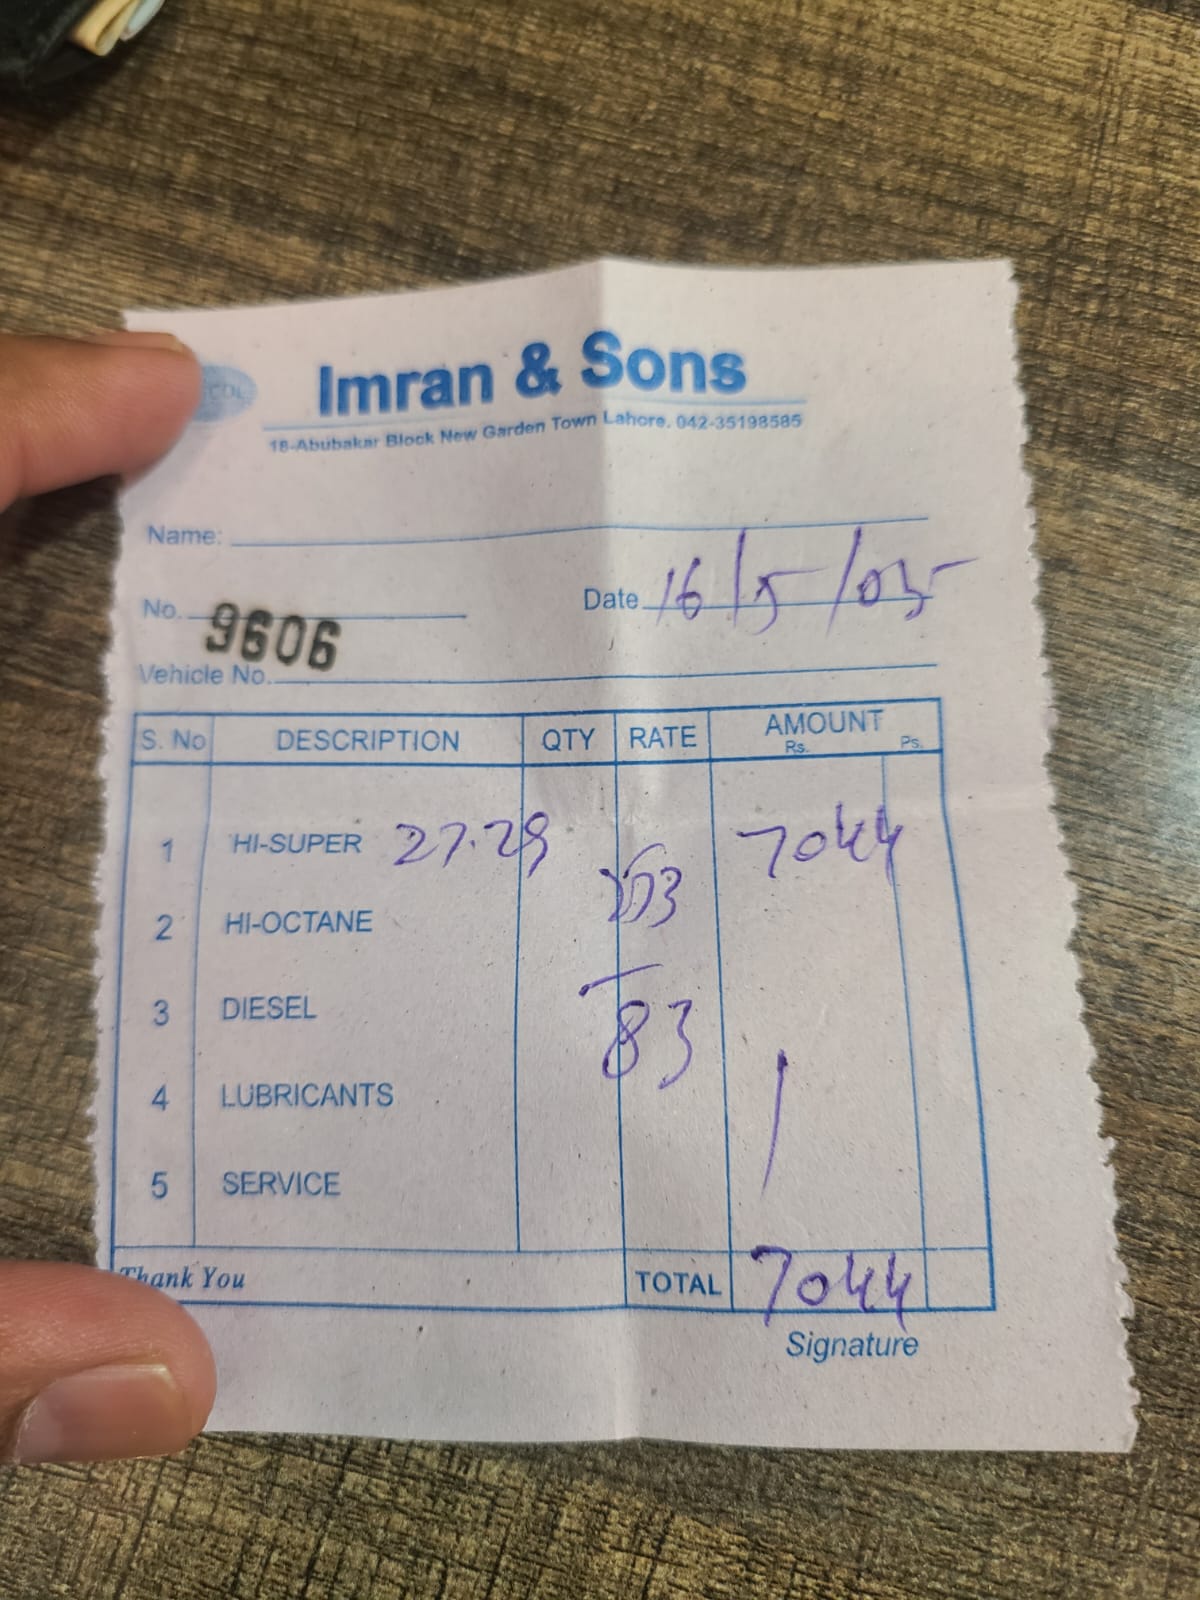 Imran & Sons
18-Abubakar Block New Garden Town Lahore. 042-35198585
Name:
No. 9606
Date 16/5/05
Vehicle No.
S. No DESCRIPTION QTY RATE AMOUNT
Rs. Ps.
1 HI-SUPER 27.29 7044
2 HI-OCTANE
3 DIESEL 83
4 LUBRICANTS
5 SERVICE
Thank You TOTAL 7044
Signature